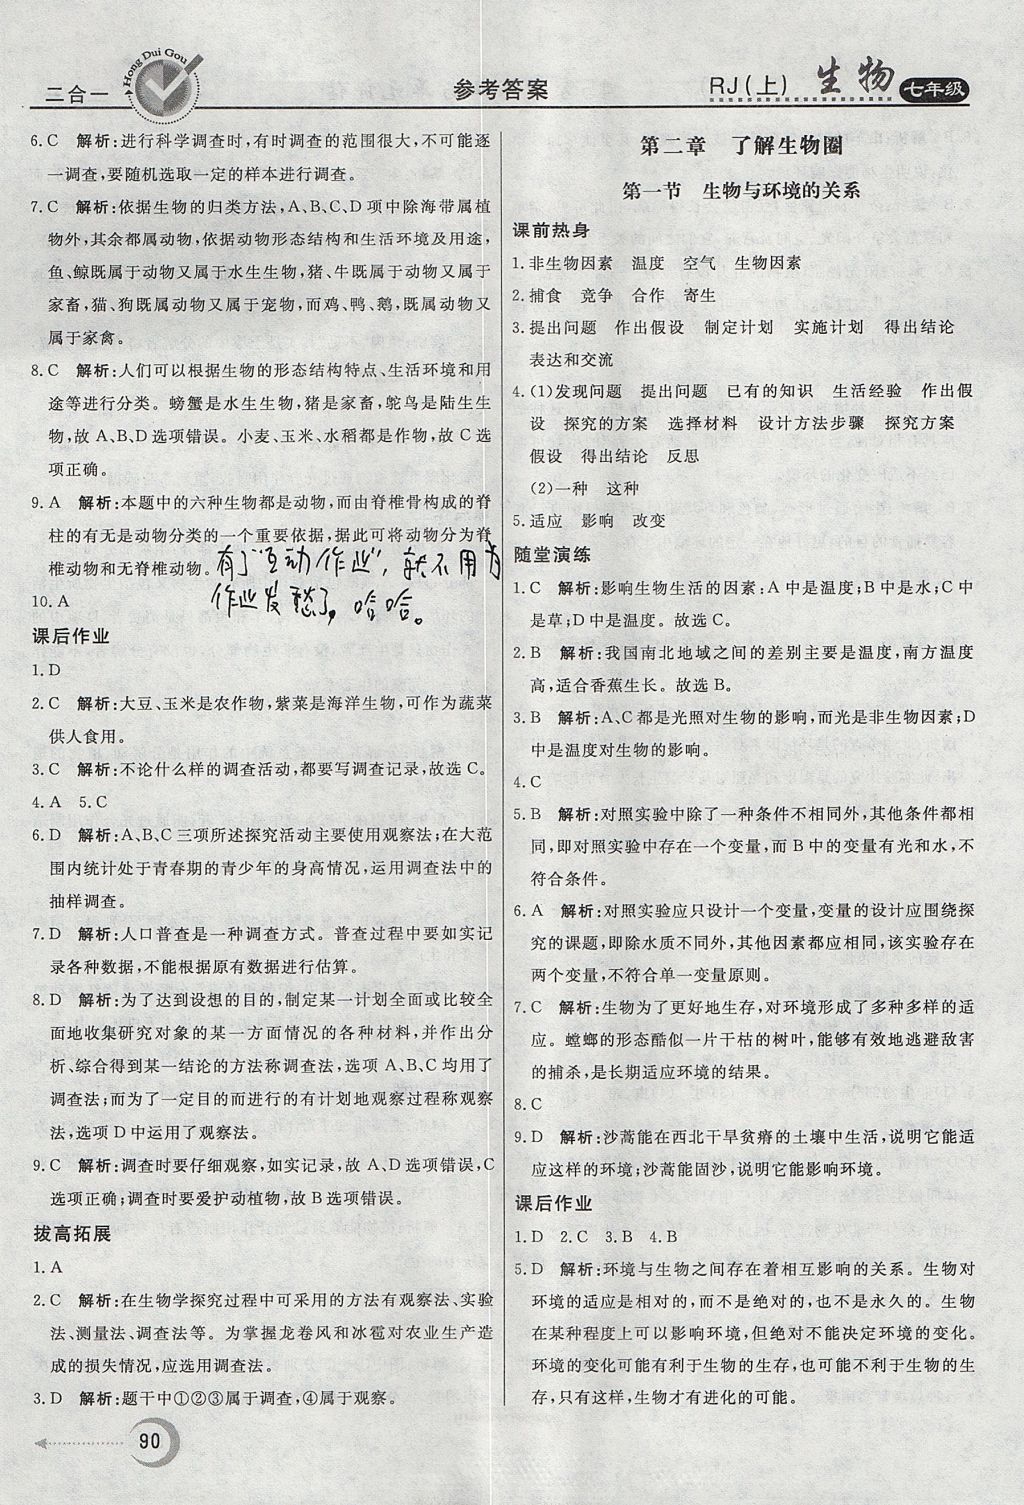 二合一
Hong Dui Gou
参考答案
RJ(上)
生物
七年级
6.C 解析:进行科学调查时,有时调查的范围很大,不可能逐
一调查,要随机选取一定的样本进行调查。
7.C 解析:依据生物的归类方法,A、B、C、D 项中除海带属植
物外,其余都属动物,依据动物形态结构和生活环境及用途,
鱼、鲸既属于动物又属于水生生物,猪、牛既属于动物又属于
家畜,猫、狗既属动物又属于宠物,而鸡、鸭、鹅,既属动物又
属于家禽。
8.C 解析:人们可以根据生物的形态结构特点、生活环境和用
途等进行分类。螃蟹是水生生物,猪是家畜,鸵鸟是陆生生
物,故 A、B、D 选项错误。小麦、玉米、水稻都是作物,故 C 选
项正确。
9.A 解析:本题中的六种生物都是动物,而由脊椎骨构成的脊
柱的有无是动物分类的一个重要依据,据此可将动物分为脊
椎动物和无脊椎动物。
有了“互动作业”,就不用为
作业发愁了,哈哈。
10.A
课后作业
1.D
2.C 解析:大豆、玉米是农作物,紫菜是海洋生物,可作为蔬菜
供人食用。
3.C 解析:不论什么样的调查活动,都要写调查记录,故选 C。
4.A 5.C
6.D 解析:A、B、C 三项所述探究活动主要使用观察法;在大范
围内统计处于青春期的青少年的身高情况,运用调查法中的
抽样调查。
7.D 解析:人口普查是一种调查方式。普查过程中要如实记
录各种数据,不能根据原有数据进行估算。
8.D 解析:为了达到设想的目的,制定某一计划全面或比较全
面地收集研究对象的某一方面情况的各种材料,并作出分
析、综合得到某一结论的方法称调查法,选项 A、B、C 均运用了
调查法;而为了一定目的而进行的有计划地观察过程称观察
法,选项 D 中运用了观察法。
9.C 解析:调查时要仔细观察,如实记录,故 A、D 选项错误,C
选项正确;调查时要爱护动植物,故 B 选项错误。
拔高拓展
1.A
2.C 解析:在生物学探究过程中可采用的方法有观察法、实验
法、测量法、调查法等。为掌握龙卷风和冰雹对农业生产造
成的损失情况,应选用调查法。
3.D 解析:题干中①②③属于调查,④属于观察。
第二章 了解生物圈
第一节 生物与环境的关系
课前热身
1.非生物因素 温度 空气 生物因素
2.捕食 竞争 合作 寄生
3.提出问题 作出假设 制定计划 实施计划 得出结论
表达和交流
4.(1)发现问题 提出问题 已有的知识 生活经验 作出假
设 探究的方案 选择材料 设计方法步骤 探究方案
假设 得出结论 反思
(2)一种 这种
5.适应 影响 改变
随堂演练
1.C 解析:影响生物生活的因素:A 中是温度;B 中是水;C 中
是草;D 中是温度。故选 C。
2.B 解析:我国南北地域之间的差别主要是温度,南方温度
高,适合香蕉生长。故选 B。
3.B 解析:A、C 都是光照对生物的影响,而光是非生物因素;D
中是温度对生物的影响。
4.C
5.B 解析:对照实验中除了一种条件不相同外,其他条件都相
同,即对照实验中存在一个变量,而 B 中的变量有光和水,不
符合条件。
6.A 解析:对照实验应只设计一个变量,变量的设计应围绕探
究的课题,即除水质不同外,其他因素都应相同,该实验存在
两个变量,不符合单一变量原则。
7.C 解析:生物为了更好地生存,对环境形成了多种多样的适
应。螳螂的形态酷似一片干枯的树叶,能够有效地逃避敌害
的捕杀,是长期适应环境的结果。
8.C
9.D 解析:沙蒿能在西北干旱贫瘠的土壤中生活,说明它能适
应这样的环境;沙蒿能固沙,说明它能影响环境。
课后作业
1.D 2.C 3.B 4.B
5.D 解析:环境与生物之间存在着相互影响的关系。生物对
环境的适应是相对的,而不是绝对的,也不是永久的。生物
在某种程度上可以影响环境,但绝对不能决定环境的变化。
环境的变化可能有利于生物的生存,也可能不利于生物的生
存,只有这样,生物才有进化的可能。
90